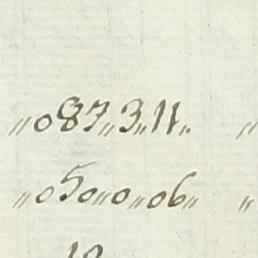 „087„3„11„ „
„050„0„06„ „